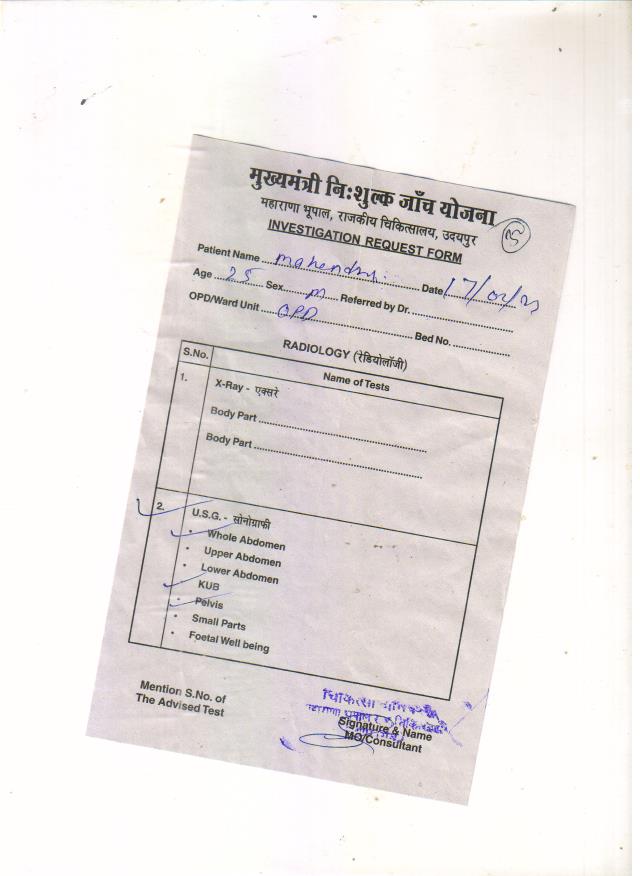 मुख्यमंत्री नि:शुल्क जाँच योजना
महाराणा भूपाल, राजकीय चिकित्सालय, उदयपुर
INVESTIGATION REQUEST FORM
Patient Name ..... Mahendra ..... Date 17/02/23
Age ..... 25 ..... Sex ..... M ..... Referred by Dr. .....
OPD/Ward Unit ..... OPD ..... Bed No. .....
RADIOLOGY (रेडियोलॉजी)
S.No. Name of Tests
1. X-Ray - एक्सरे
Body Part .....
Body Part .....
2. U.S.G. - सोनोग्राफी
• Whole Abdomen
• Upper Abdomen
• Lower Abdomen
KUB
• Pelvis
• Small Parts
• Foetal Well being
Mention S.No. of
The Advised Test
चिकित्सा
महाराणा भूपाल
Signature & Name
MO/Consultant